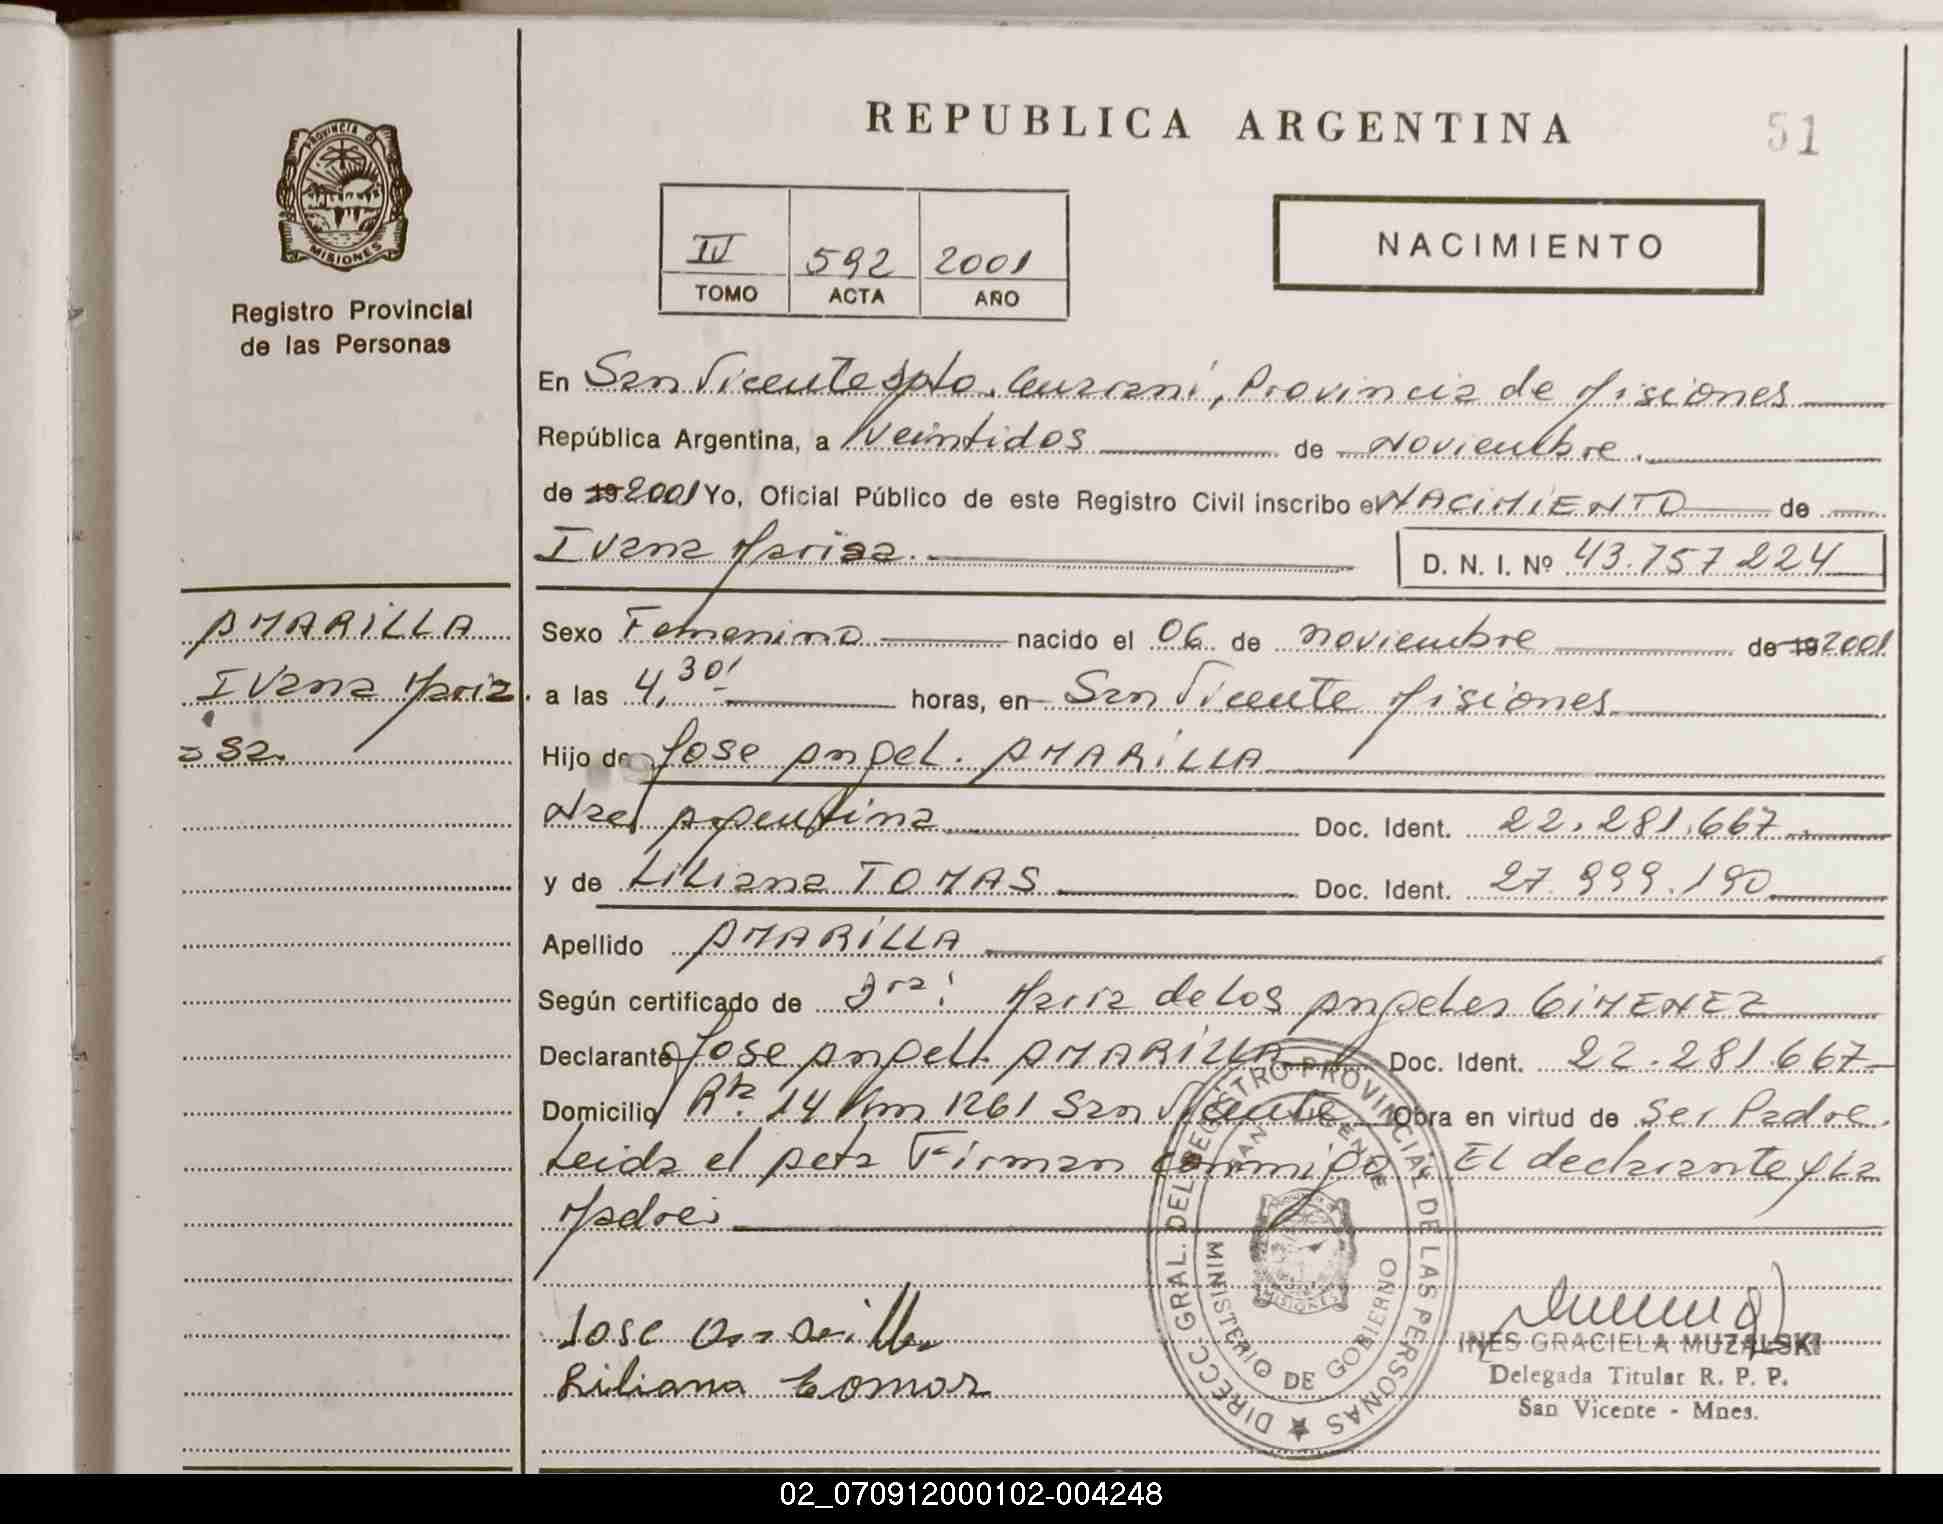 REPUBLICA ARGENTINA
51
PROVINCIA D
MISIONES
Registro Provincial
de las Personas
IV 592 2001
TOMO ACTA AÑO
NACIMIENTO
En San Vicente Dpto. Guaraní, Provincia de Misiones
República Argentina, a Veintidos de Noviembre.
de 19 2001 Yo, Oficial Público de este Registro Civil inscribo el NACIMIENTO de
Ivana Marisa.
D. N. I. Nº 43.757.224
AMARILLA
Ivana Maria
sa.
Sexo Femenino nacido el 06 de noviembre de 19 2001
a las 4,30' horas, en San Vicente Misiones
Hijo de Jose Angel. AMARILLA
Nac. Argentina Doc. Ident. 22.281.667.
y de Liliana TOMAS Doc. Ident. 27.999.190
Apellido AMARILLA
Según certificado de Dra: Maria de Los Angeles GIMENEZ
Declarante Jose Angel. AMARILLA Doc. Ident. 22.281.667
Domicilio Rta. 14 Km 1261 San Vicente Obra en virtud de ser Padre.
Leida el Acta Firman conmigo El declarante y La
Madre:
Jose Amarilla
Liliana Tomas
DIRECC. GRAL. DEL REGISTRO PROVINCIAL DE LAS PERSONAS
SAN VICENTE
MINISTERIO DE GOBIERNO
MISIONES
INES GRACIELA MUZALSKI
Delegada Titular R. P. P.
San Vicente - Mnes.
02_070912000102-004248